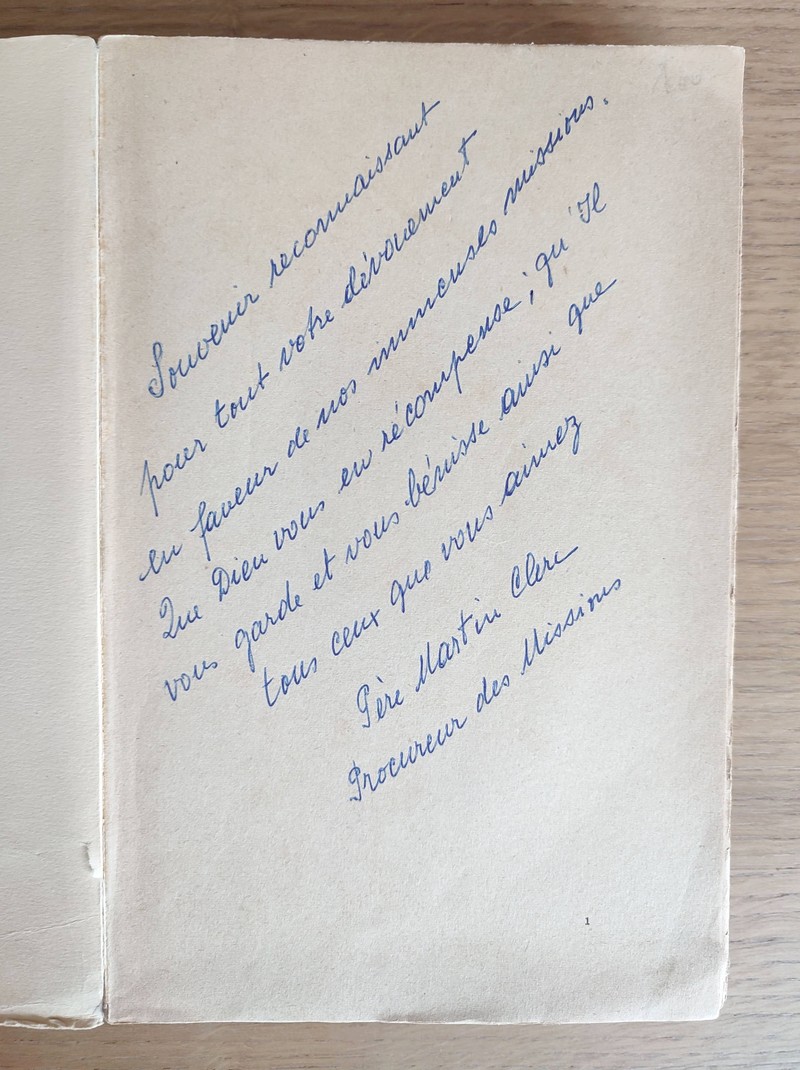 Souvenir reconnaissant
pour tout votre dévouement
en faveur de nos immenses missions.
Que Dieu vous en récompense ; qu'Il
vous garde et vous bénisse ainsi que
tous ceux que vous aimez
Père Martin Clerc
Procureur des Missions
1